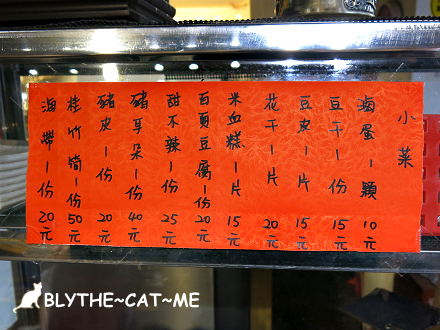 小菜
滷蛋一顆10元
豆干一份15元
豆皮一片15元
花干一片20元
米血糕一片15元
百頁豆腐一份20元
甜不辣一份25元
豬耳朵一份40元
豬皮一份20元
桂竹筍一份50元
海帶一份20元
BLYTHE~CAT~ME